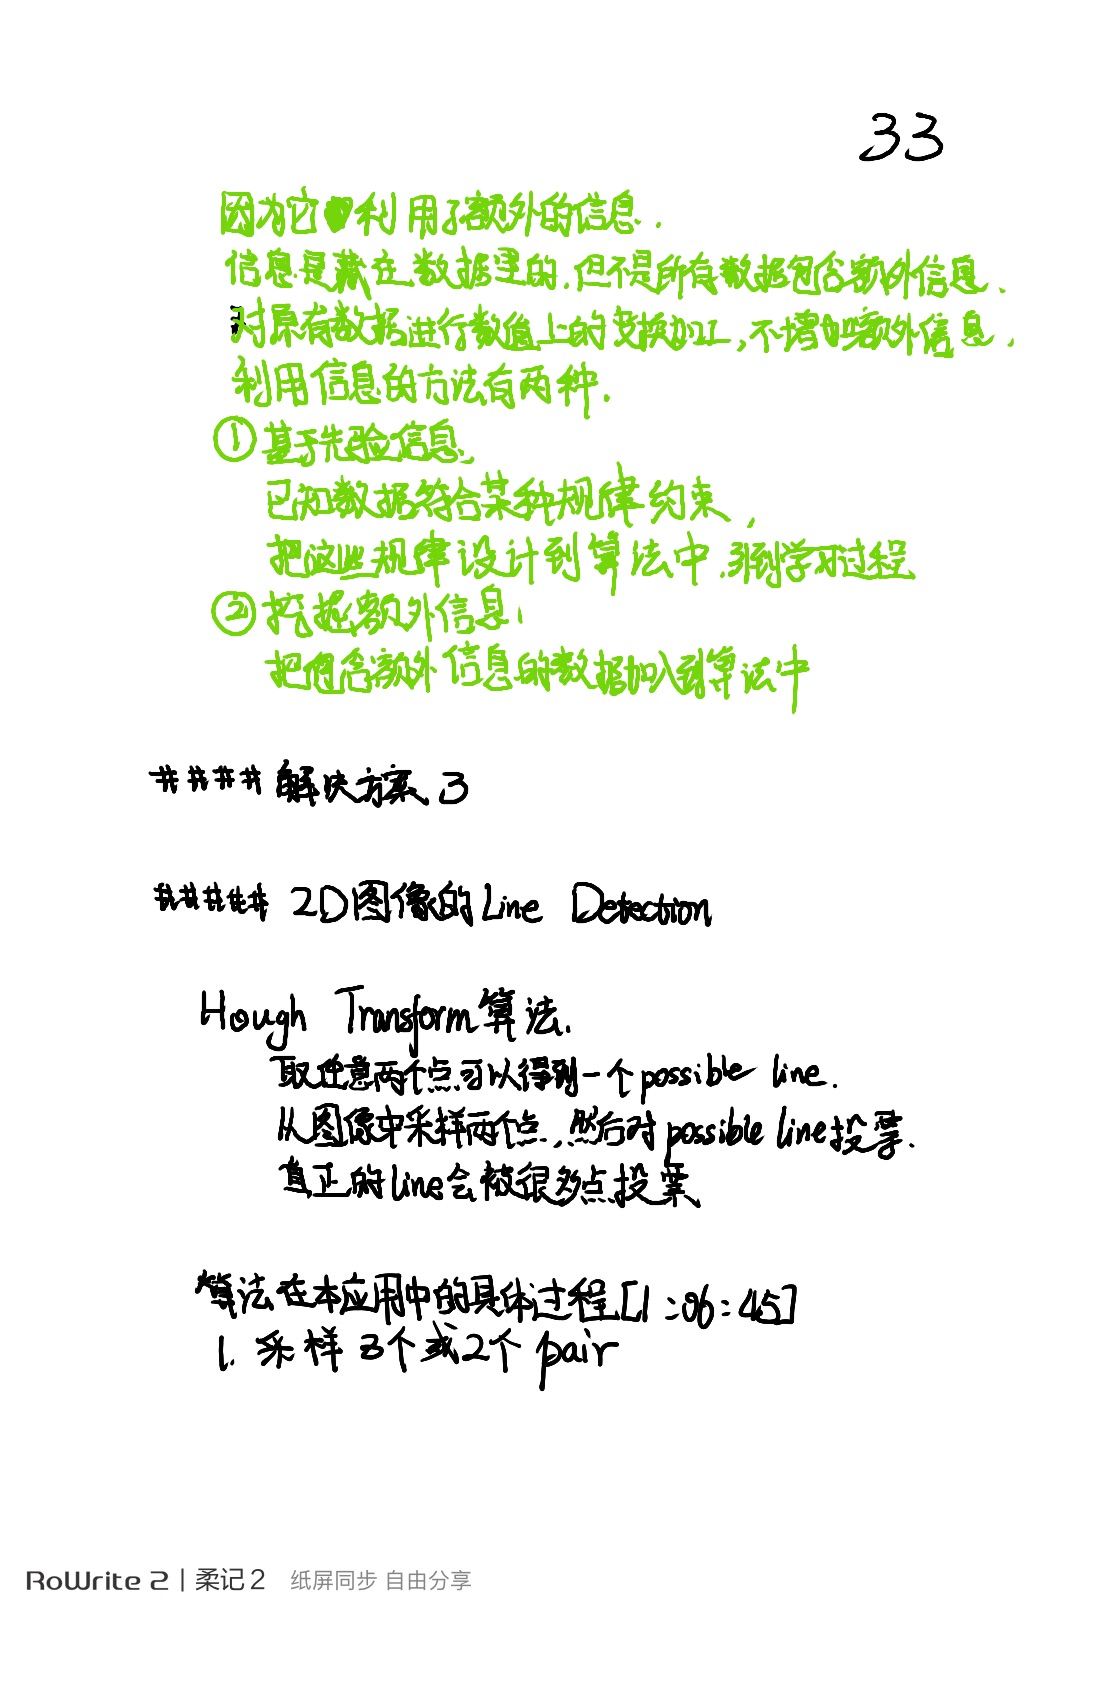 33
因为它利用了额外的信息.
信息是藏在数据里的,但不是所有数据包含额外信息.
对原有数据进行数值上的变换加工,不增加额外信息.
利用信息的方法有两种.
① 基于先验信息.
已知数据符合某种规律约束,
把这些规律设计到算法中,学习过程
② 挖掘额外信息.
把包含额外信息的数据加入到算法中
#### 解决方案3
##### 2D图像的Line Detection
Hough Transform算法.
取任意两个点可以得到一个possible line.
从图像中采样两个点,然后对possible line投票.
真正的line会被很多点投票
算法在本应用中的具体过程[1:06:45]
1. 采样3个或2个pair
RoWrite 2 | 柔记2 纸屏同步 自由分享